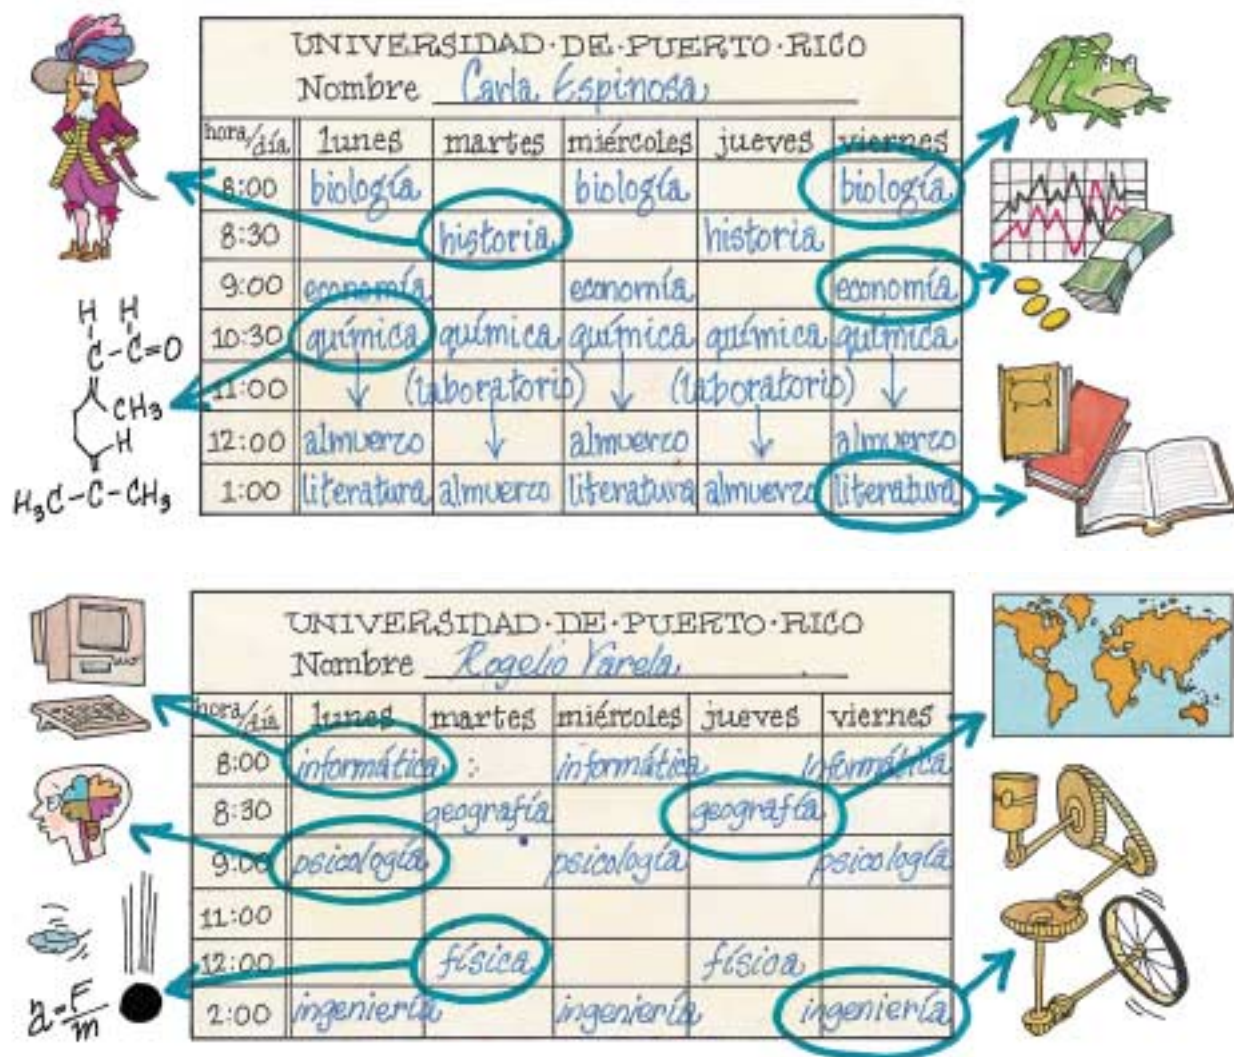 UNIVERSIDAD·DE·PUERTO·RICO
Nombre Carla Espinosa
hora/día lunes martes miércoles jueves viernes
8:00 biología biología biología
8:30 historia historia
9:00 economía economía economía
10:30 química química química química química
11:00 (laboratorio) (laboratorio)
12:00 almuerzo almuerzo almuerzo
1:00 literatura almuerzo literatura almuerzo literatura
H H
C-C=O
CH₃
H
H₃C-C-CH₃
UNIVERSIDAD·DE·PUERTO·RICO
Nombre Rogelio Varela
hora/día lunes martes miércoles jueves viernes
8:00 informática informática informática
8:30 geografía geografía
9:00 psicología psicología psicología
11:00
12:00 física física
2:00 ingeniería ingeniería ingeniería
a=F/m